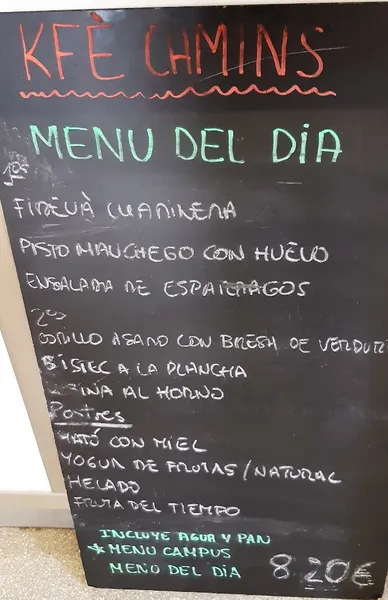 KFÈ CHMINS
MENU DEL DIA
1os
FIDEUÀ MARINERA
PISTO MANCHEGO CON HUEVO
ENSALADA DE ESPARRAGOS
2os
CODILLO ASADO CON BRESA DE VERDUR
BISTEC A LA PLANCHA
AL HORNO
Postres
MATÓ CON MIEL
YOGUR DE FRUTAS/NATURAL
HELADO
FRUTA DEL TIEMPO
INCLUYE AGUA Y PAN
* MENU CAMPUS
MENU DEL DIA 8,20€